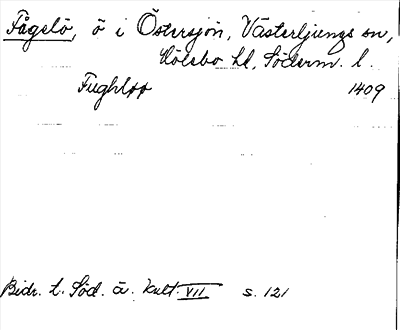 Fågelö, ö i Östersjön, Västerljungs sn,
Hölebo hd, Söderm. l.
Fughløø 1409
Bidr. t. Söd. ä. kult. VII s. 121